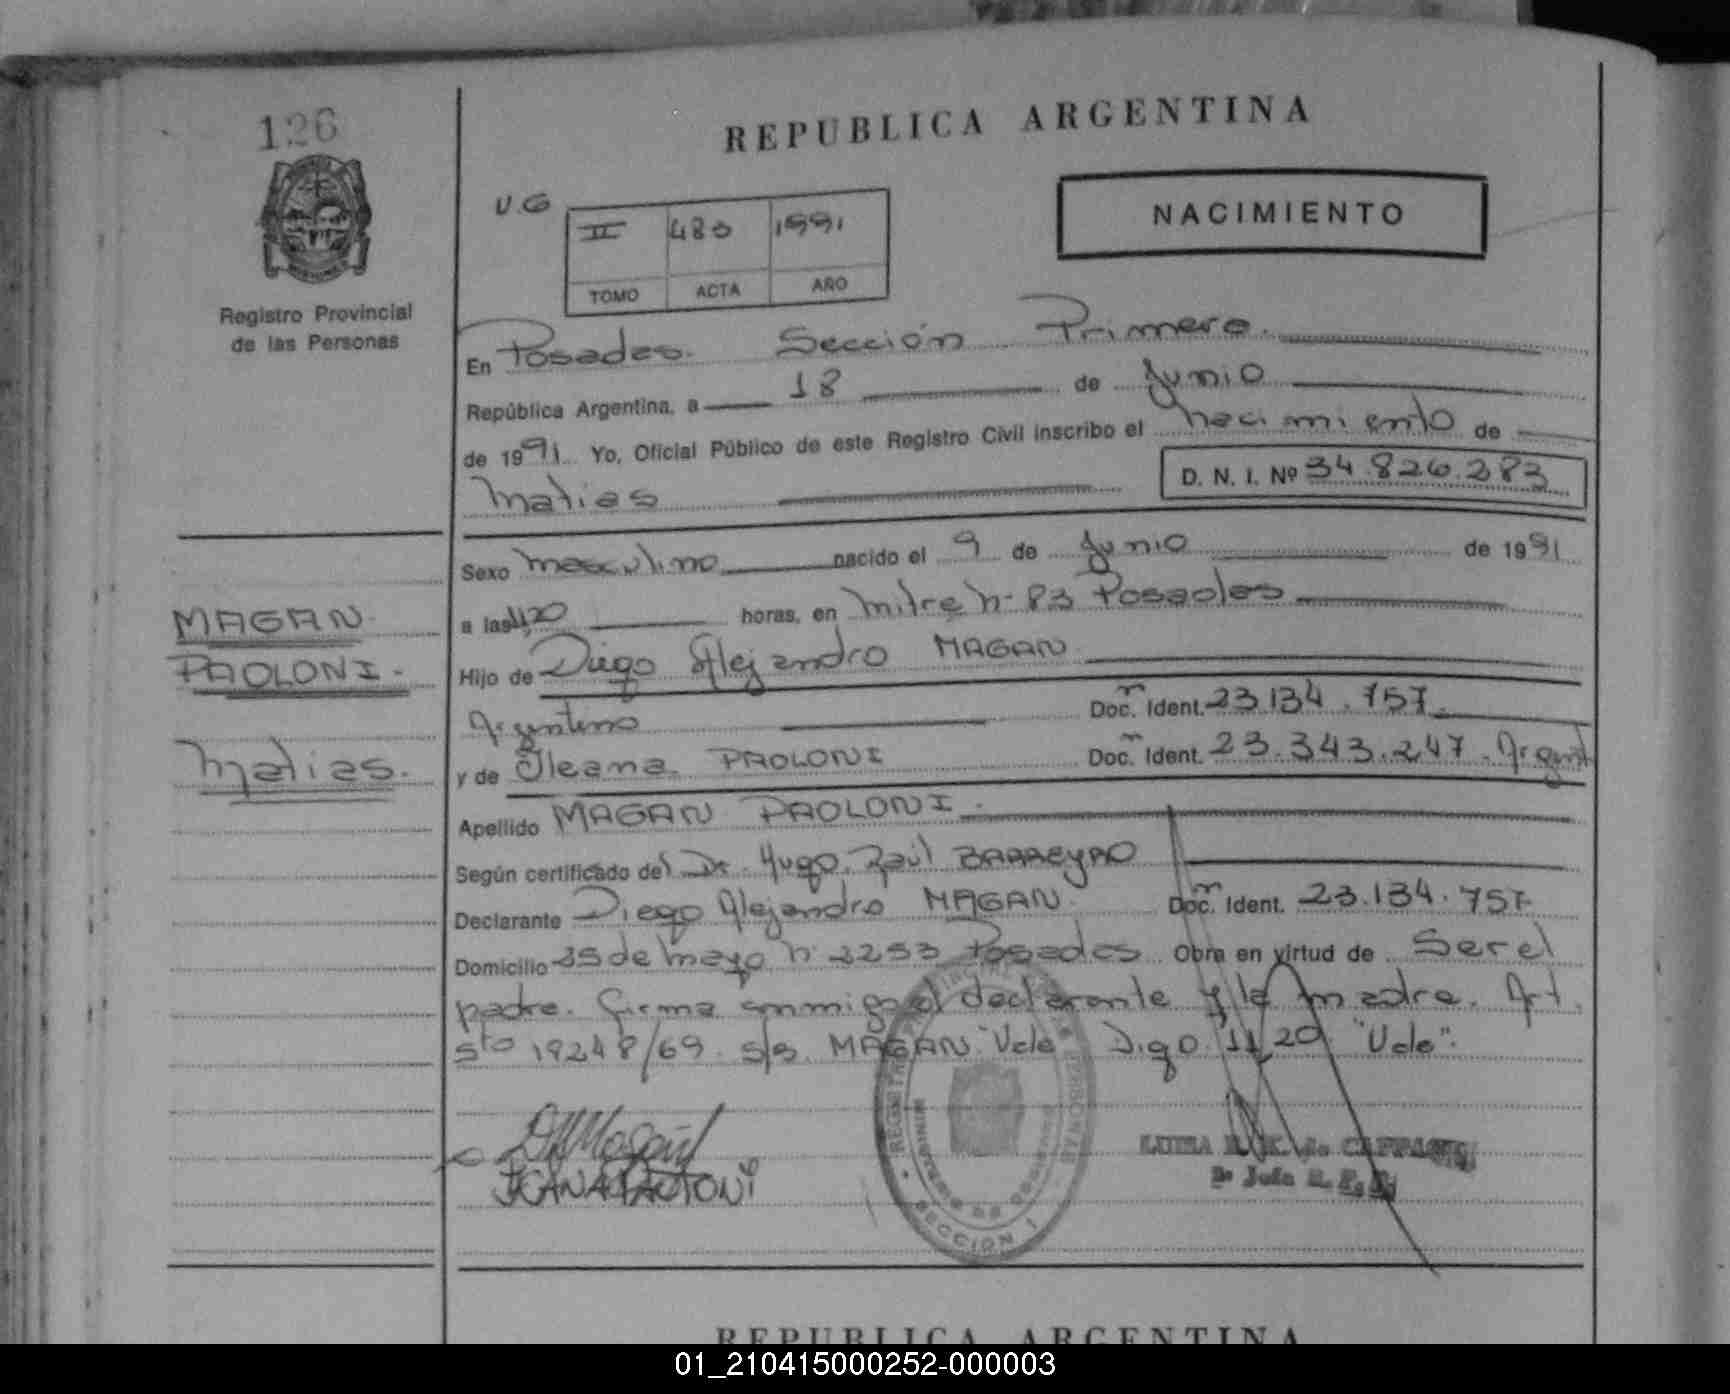 126
REPUBLICA ARGENTINA
U.G
II 480 1991
TOMO ACTA AÑO
NACIMIENTO
Registro Provincial
de las Personas
En Posadas. Sección Primera.
República Argentina, a 18 de Junio
de 1991. Yo, Oficial Público de este Registro Civil inscribo el nacimiento de
Matias
D. N. I. Nº 34.826.283
Sexo masculino nacido el 9 de Junio de 1991
a las 11,20 horas, en Mitre nº 83 Posadas
MAGAN
PAOLONI.
Matias.
Hijo de Diego Alejandro MAGAN
Argentino Doc. Ident. 23.134.757.
y de Ileana PAOLONI Doc. Ident. 23.343.247. Argent
Apellido MAGAN PAOLONI.
Según certificado del Dr. Hugo Raúl BARREYRO
Declarante Diego Alejandro MAGAN. Doc. Ident. 23.134.757.
Domicilio 25 de Mayo nº 2253 Posadas Obra en virtud de Ser el
padre. firma conmigo el declarante y la madre. Art.
5to 19248/69. s/s. MAGAN "Vale" Digo 11,20 "Vale".
REGISTRO PROVINCIAL DE LAS PERSONAS
MINISTERIO DE GOBIERNO
SECCION 1
REPUBLICA ARGENTINA
01_210415000252-000003